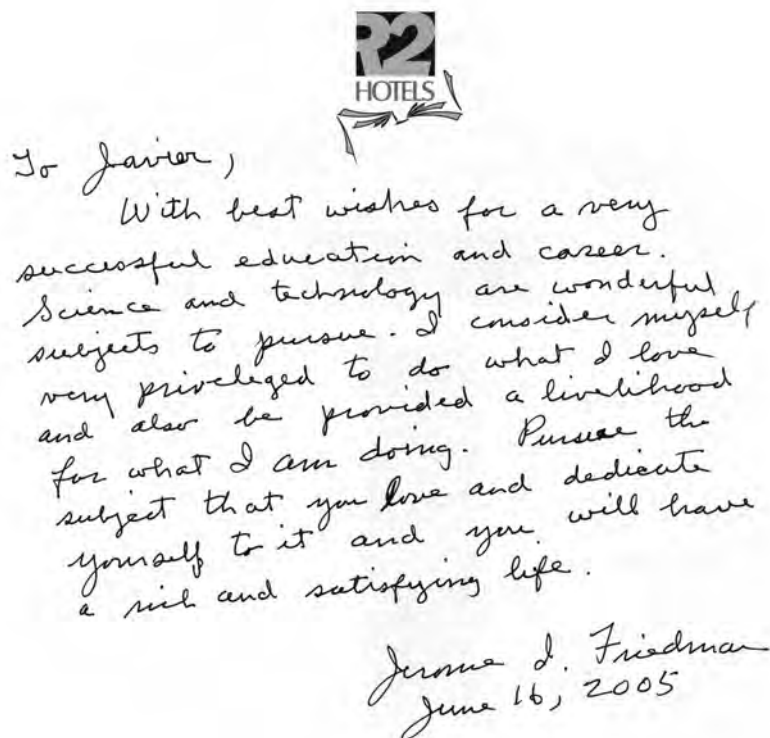 R2
HOTELS
To Javier,
With best wishes for a very
successful education and career.
Science and technology are wonderful
subjects to pursue. I consider myself
very priveleged to do what I love
and also be provided a livelihood
for what I am doing. Pursue the
subject that you love and dedicate
yourself to it and you will have
a rich and satisfying life.
Jerome I. Friedman
June 16, 2005